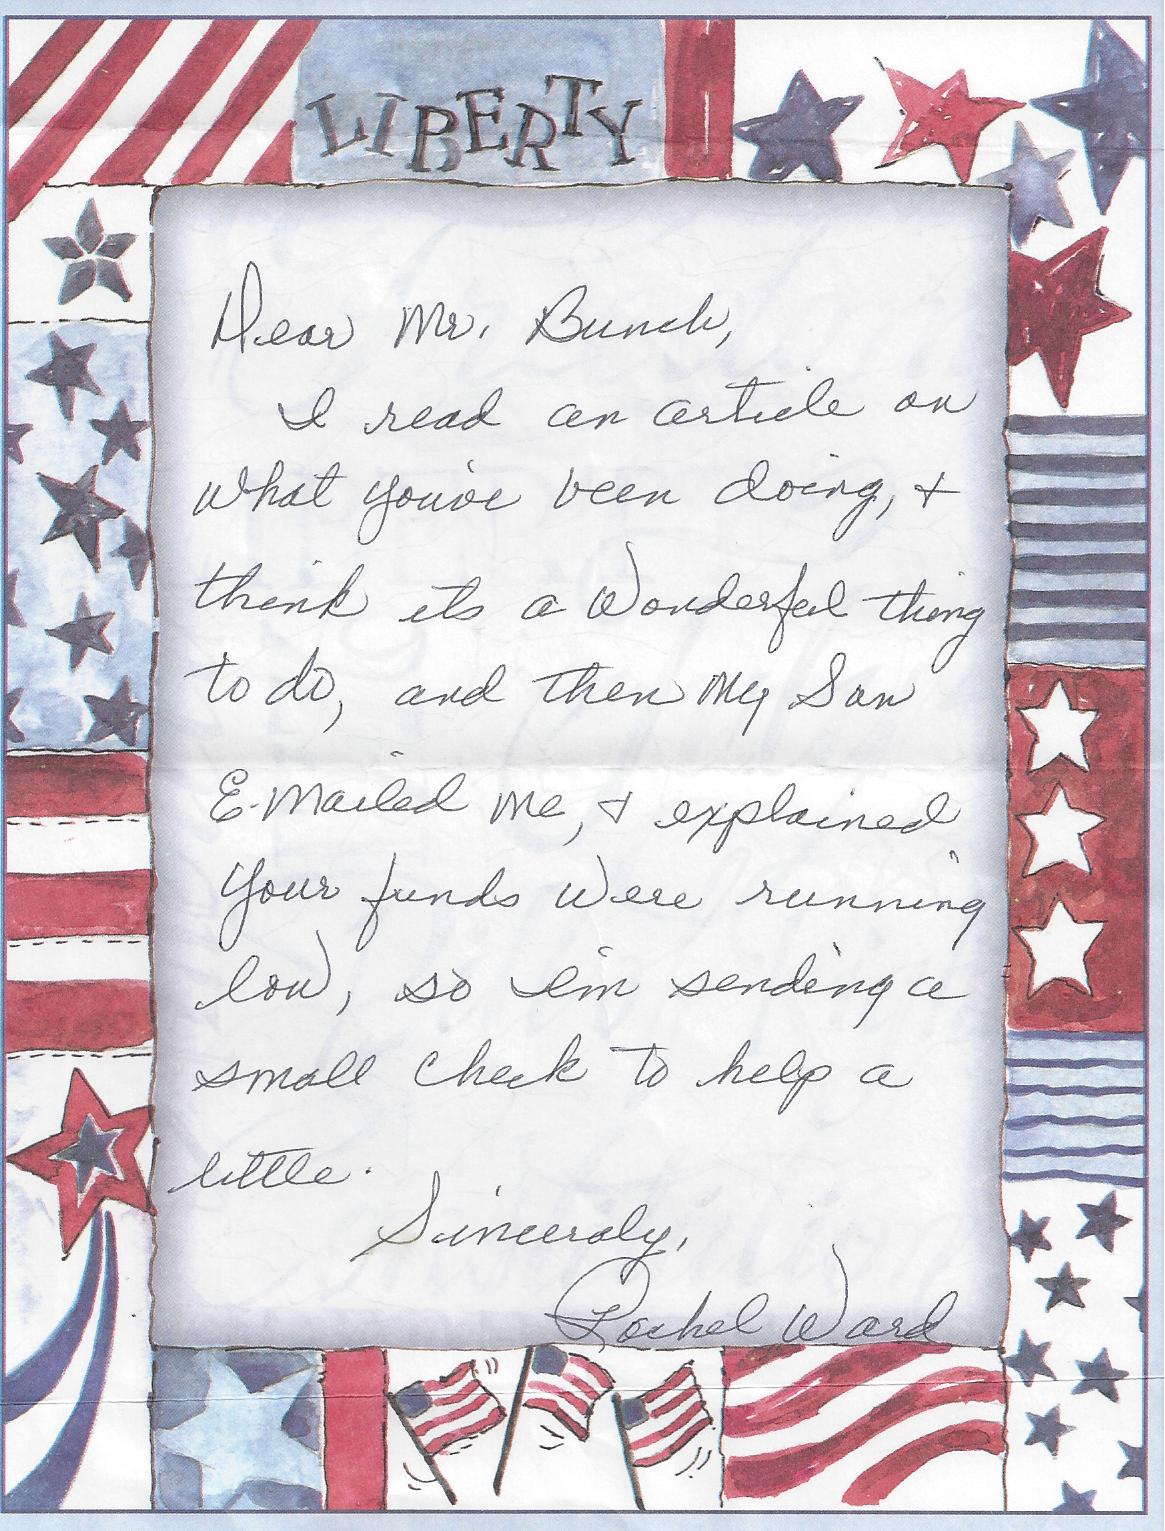 LIBERTY
Dear Mr. Bunch,
I read an article on
what you've been doing, &
think its a wonderful thing
to do, and then my Son
E-mailed me, & explained
your funds were running
low, so I'm sending a
small check to help a
little.
Sincerely,
Rachel Ward